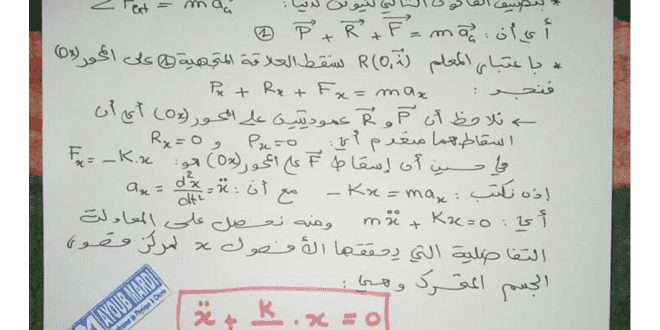 * بتطبيق القانون الثاني لنيوتن لدينا: Σ F⃗ext = m a⃗G
أي أن: P⃗ + R⃗ + F⃗ = m a⃗G ①
* باعتبار المعلم R(O,i⃗) نسقط العلاقة المتجهية ① على المحور (Ox)
فنجد: Px + Rx + Fx = max
← نلاحظ أن P⃗ و R⃗ عموديتين على المحور (Ox) أي أن
إسقاطهما منعدم أي: Px=0 و Rx=0
في حين أن إسقاط F⃗ على المحور (Ox) هو: Fx = -K.x
إذن نكتب: -Kx = max مع أن: ax = d²x/dt² = ẍ
أي: mẍ + Kx = 0 ومنه نحصل على المعادلة
التفاضلية التي يحققها الأفصول x لمركز قصور
الجسم المتحرك وهي:
ẍ + K/ . x = 0
AYOUB MARDI